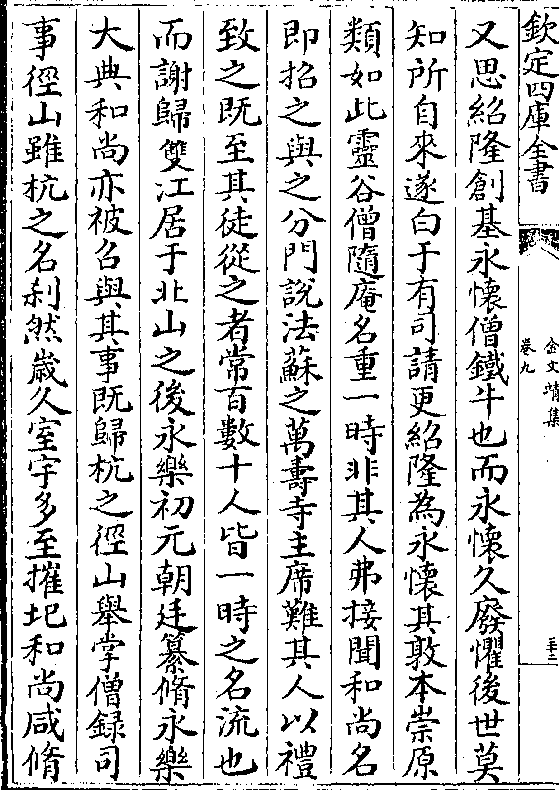 欽定四庫全書
金文靖集
卷九
三十三
又思紹隆創基永懷僧鐵牛也而永懷久廢懼後世莫
知所自來遂白于有司請更紹隆為永懷其敦本崇原
類如此靈谷僧隨庵名重一時非其人弗接聞和尚名
即招之與之分門說法蘇之萬壽寺主席難其人以禮
致之既至其徒從之者常百數十人皆一時之名流也
而謝歸雙江居于北山之後永樂初元朝廷纂脩永樂
大典和尚亦被召與其事既歸杭之徑山舉掌僧録司
事徑山雖杭之名刹然歲久室宇多至摧圯和尚咸脩